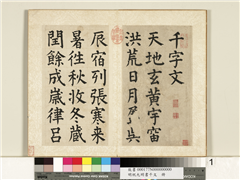 千字文
天地玄黃宇宙
洪荒日月盈昃
辰宿列張寒来
暑往秋收冬蔵
閏餘成歲律呂